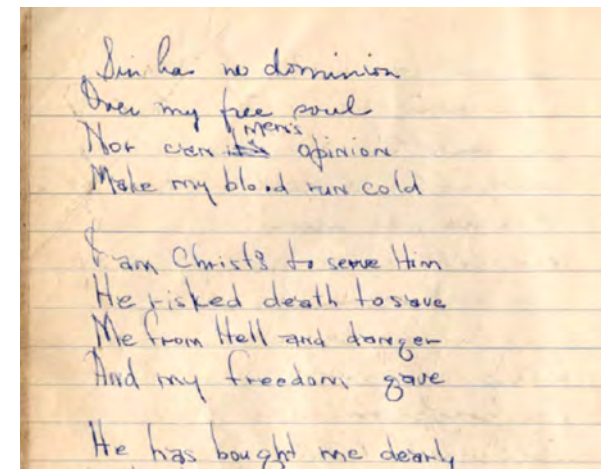 Sin has no dominion
Over my free soul
Nor can men's opinion
Make my blood run cold
I am Christ's to serve Him
He risked death to save
Me from Hell and danger
And my freedom gave
He has bought me dearly